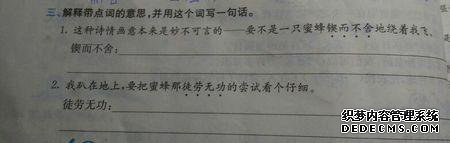 三、解释带点词的意思,并用这个词写一句话。
1. 这种诗情画意本来是妙不可言的——要不是一只蜜蜂锲而不舍地绕着我飞。
锲而不舍:
2. 我趴在地上,要把蜜蜂那徒劳无功的尝试看个仔细。
徒劳无功:
织梦内容管理系统
DEDECMS.COM